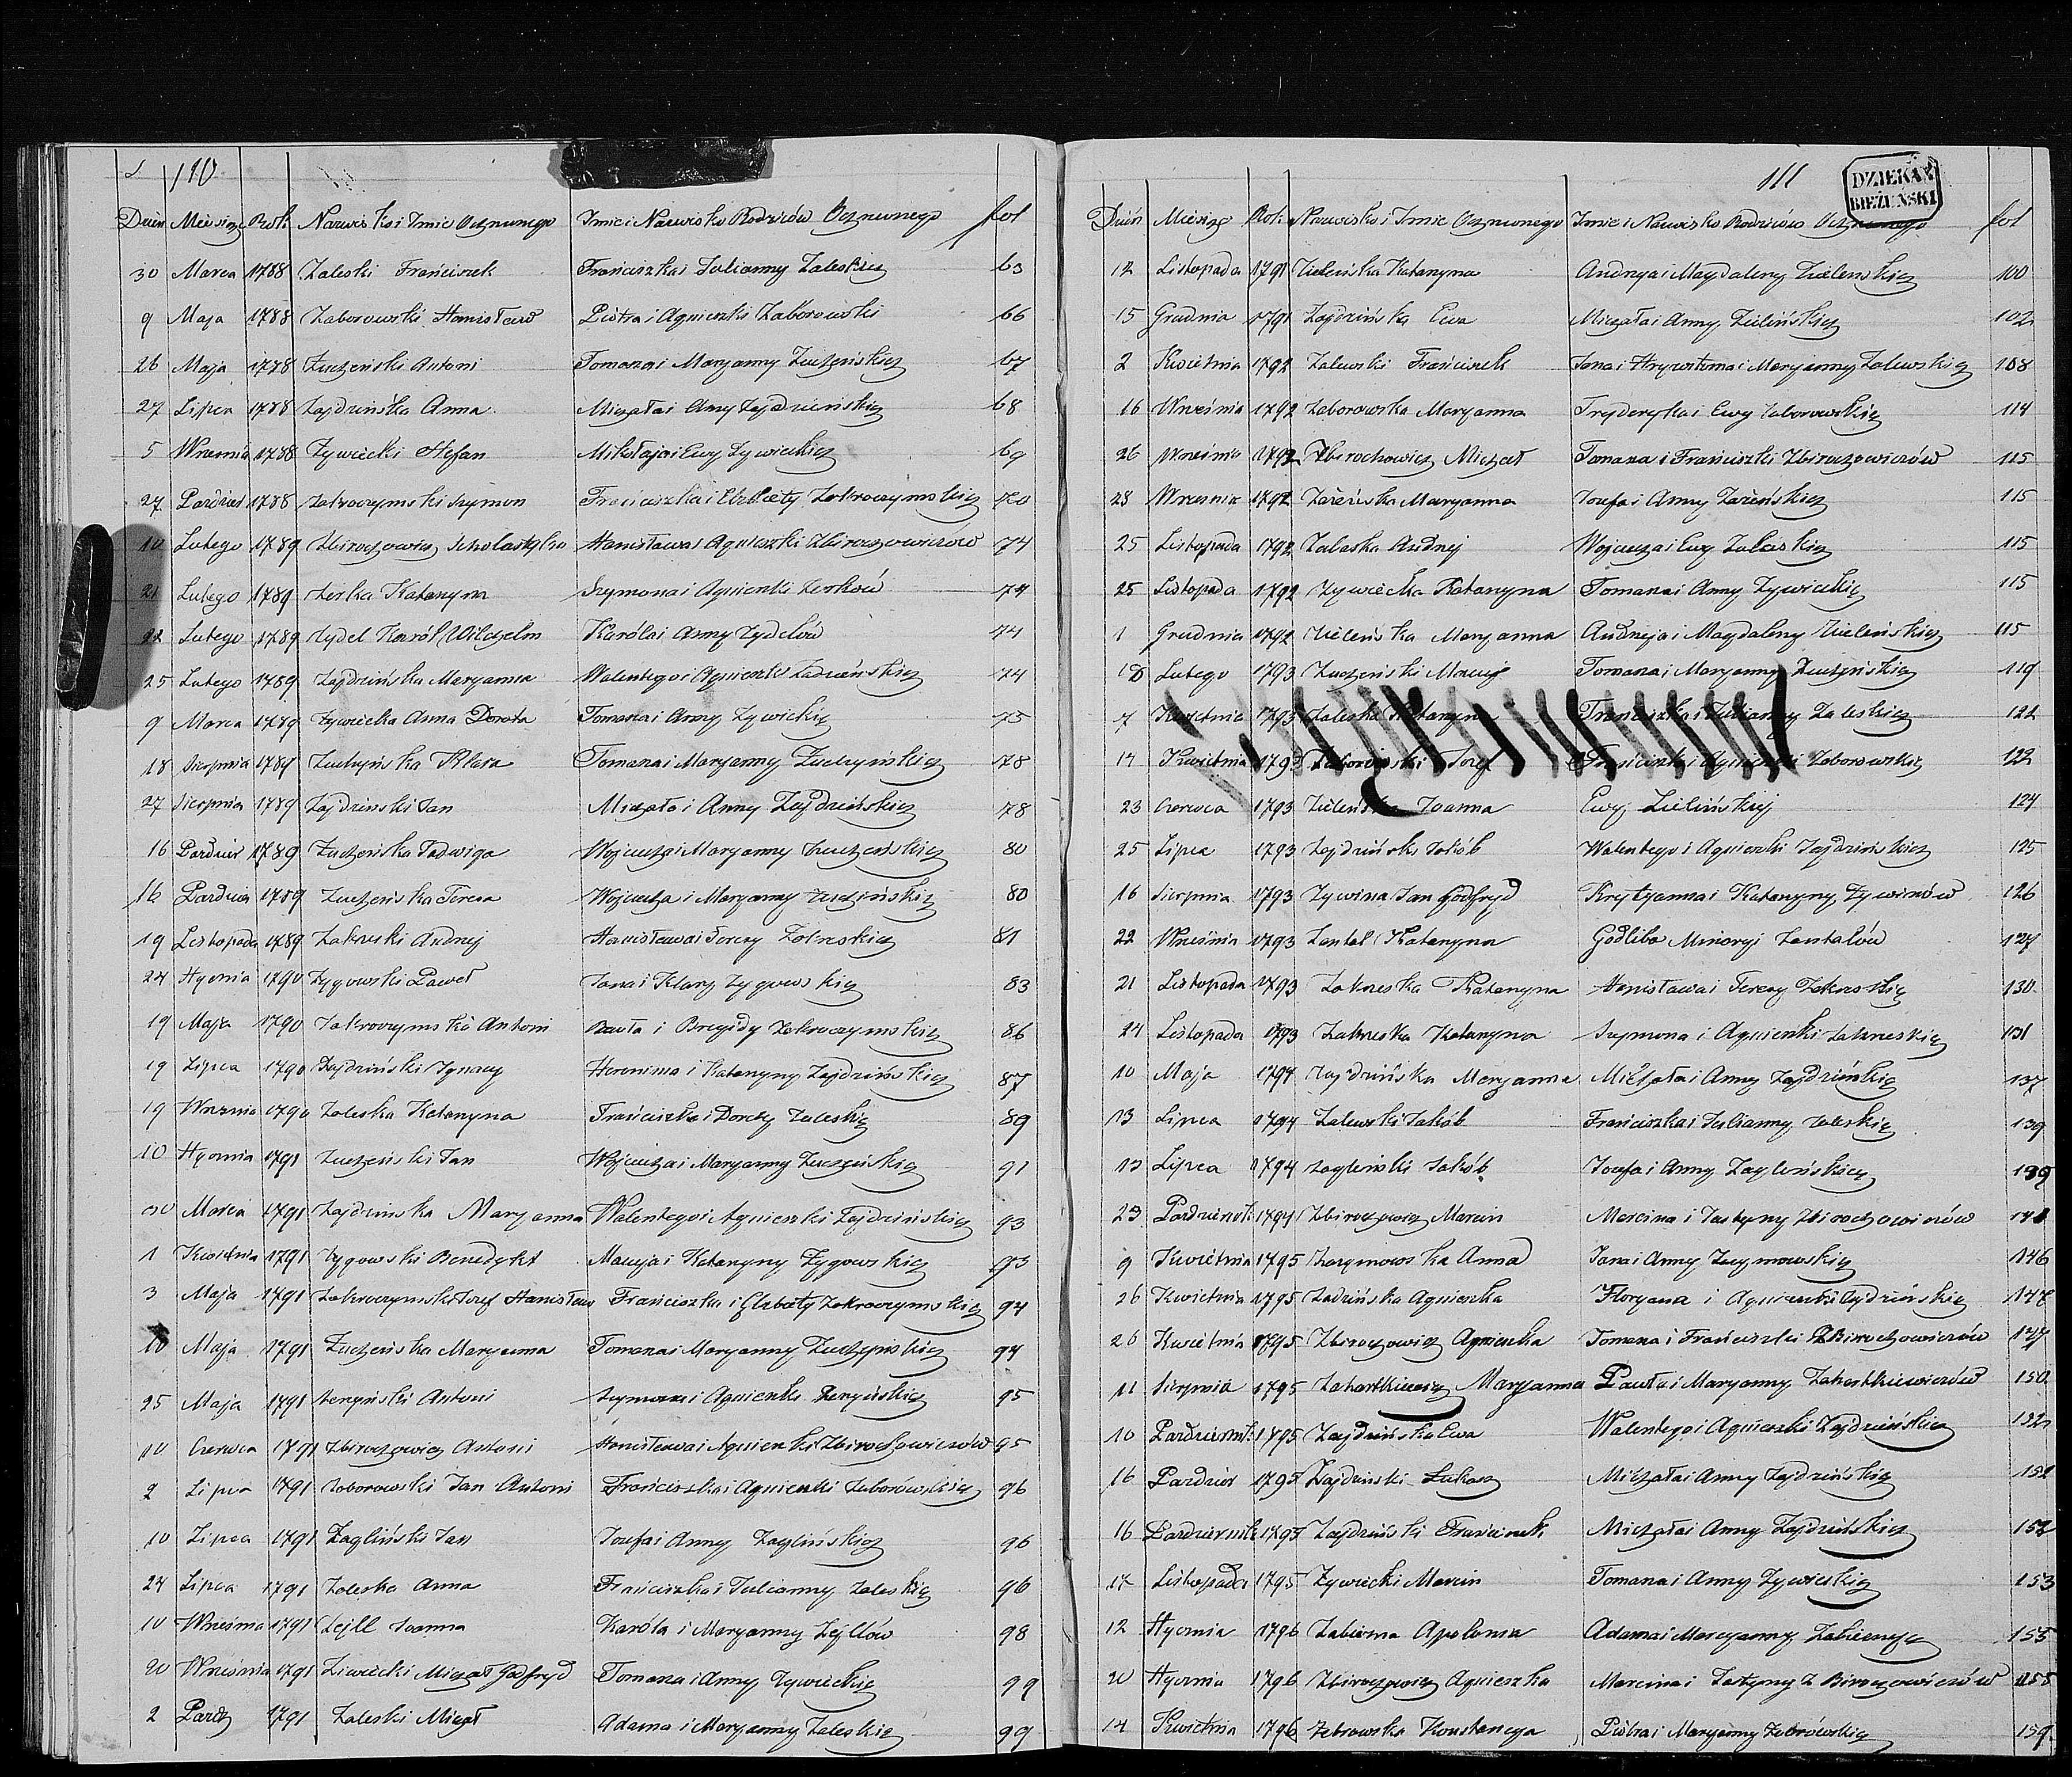 110
Dzień Miesiąc Rok Nazwisko i Imie Ochrzczonego Imie i Nazwisko Rodziców fol
30 Marca 1788 Zaleski Franciszek Franciszka i Julianny Zaleskich 63
9 Maja 1788 Zaborowski Stanisław Piotra i Agnieszki Zaborowski 66
26 Maja 1788 Żucheński Antoni Tomasza i Maryanny Żucheńskich 67
27 Lipca 1788 Zajdzińska Anna Michała i Anny Zajdzińskich 68
5 Wrzesnia 1788 Żywiecki Stefan Mikołaja i Ewy Żywieckich 69
27 Pazdzier 1788 Zakroczymski Szymon Franciszka i Elzbiety Zakroczymskich 70
10 Lutego 1789 Zbirochowicz Scholastyka Stanisława i Agnieszki Zbirochowiczów 74
21 Lutego 1789 Zerka Katarzyna Szymona i Agnieszki Zerków 74
22 Lutego 1789 Zydel Karól Wilchelm Karóla i Anny Zydelów 74
25 Lutego 1789 Zajdzińska Maryanna Walentego i Agnieszki Zadzińskich 74
9 Marca 1789 Żywiecka Anna Dorota Tomasza i Anny Żywickich 75
18 Sierpnia 1789 Żuchyńska Klara Tomasza i Maryanny Żuchyńskich 78
27 Sierpnia 1789 Zajdzinski Jan Michała i Anny Zajdzińskich 78
16 Pazdzier 1789 Żucheńska Jadwiga Wojciecha i Maryanny Żucheńskich 80
16 Pazdzier 1789 Żucheńska Teresa Wojciecha i Maryanny Żuchińskich 80
19 Listopada 1789 Zakrzeski Andrzej Stanisława i Teresy Zakrzeskich 81
24 Stycznia 1790 Zygowski Paweł Jana i Klary Zygowskich 83
19 Maja 1790 Zakroczymski Antoni Pawła i Brygidy Zakroczymskich 86
19 Lipca 1790 Zajdziński Ignacy Hieronima i Katarzyny Zajdzińskich 87
19 Wrzesnia 1790 Zaleska Katarzyna Franciszka i Doroty Zaleskich 89
10 Stycznia 1791 Żucheński Jan Wojciecha i Maryanny Żucheńskich 91
30 Marca 1791 Zajdzinska Maryanna Walentego i Agnieszki Zajdzińskich 93
1 Kwietnia 1791 Zygowski Benedykt Macieja i Katarzyny Zygowskich 93
3 Maja 1791 Zakroczymski Jozef Stanisław Franciszka i Elzbiety Zakroczymskich 94
10 Maja 1791 Żucheńska Maryanna Tomasza i Maryanny Żuchyńskich 94
25 Maja 1791 Antoni Szymona i Agnieszki 95
10 Czerwca 1791 Zbirochowicz Antoni Stanisława i Agnieszki Zbirochowiczów 95
2 Lipca 1791 Zaborowski Jan Antoni Franciszka i Agnieszki Zaborowskich 96
10 Lipca 1791 Żagliński Jan Jozefa i Anny Żaglińskich 96
24 Lipca 1791 Zaleska Anna Franciszka i Julianny Zaleskich 96
10 Wrzesnia 1791 Zejll Joanna Karóla i Maryanny Zejllów 98
20 Wrzesnia 1791 Ziwiecki Michał Godfryd Tomasza i Anny Żywieckich 99
2 Pazdz 1791 Zaleski Michał Adama i Maryanny Zaleskich 99
111
DZIEKAN
BIEŻUŃSKI
Dzień Miesiąc Rok Nazwisko i Imie Ochrzczonego Imie i Nazwisko Rodziców fol
12 Listopada 1791 Zieleńska Katarzyna Andrzeja i Magdaleny Zieleńskich 100
15 Grudnia 1791 Zajdzińska Ewa Michała i Anny Zielińskich 102
2 Kwietnia 1792 Zalewski Franciszek Jana i Maryanny Zalewskich 108
16 Wrzesnia 1792 Zaborowska Maryanna Fryderyka i Ewy Zaborowskich 114
26 Wrzesnia 1792 Zbirochowicz Michał Tomasza i Franciszki Zbirochowiczów 115
28 Wrzesnia 1792 Zareńska Maryanna Jozefa i Anny Zareńskich 115
25 Listopada 1792 Zaleska Andrzej Wojciecha i Ewy Zaleskich 115
25 Listopada 1792 Żywiecka Katarzyna Tomasza i Anny Żywieckich 115
1 Grudnia 1792 Zieleńska Maryanna Andrzeja i Magdaleny Zieleńskich 115
18 Lutego 1793 Żucheński Maciej Tomasza i Maryanny Żucheńskich 119
7 Kwietnia 1793 Zaleska Katarzyna Franciszka i Julianny Zaleskich 122
14 Kwietnia 1793 Zaborowski Jozef Franciszka i Agnieszki Zaborowskich 122
23 Czerwca 1793 Zieleńska Joanna Ewy Zielińskiej 124
25 Lipca 1793 Zajdziński Jakób Walentego i Agnieszki Zajdzińskich 125
16 Sierpnia 1793 Zywina Jan Godfryd Krystyanna i Katarzyny Zywinów 126
22 Wrzesnia 1793 Zantal Katarzyna Godliba Zantalów 127
21 Listopada 1793 Zakrzeska Katarzyna Stanisława i Teresy Zakrzeskich 130
24 Listopada 1793 Zakrzeska Katarzyna Szymona i Agnieszki Zakrzeskich 131
10 Maja 1794 Zajdzińska Maryanna Michała i Anny Zajdzińskich 137
13 Lipca 1794 Zalewski Jakób Franciszka i Julianny Zaleskich 139
13 Lipca 1794 Zagleński Jakób Jozefa i Anny Zagleńskich 139
23 Pazdziernik 1794 Zbirochowicz Marcin Marcina i Justyny Zbirochowiczów
9 Kwietnia 1795 Zarzymowska Anna Jana i Anny 146
26 Kwietnia 1795 Zadzińska Agnieszka Floryana i Agnieszki Zajdzińskich 147
26 Kwietnia 1795 Zbirochowicz Agnieszka Tomasza i Franciszki Zbirochowiczów 147
11 Sierpnia 1795 Zahartkiewicz Maryanna Pawła i Maryanny Zahartkiewiczów 150
10 Pazdziernik 1795 Zajdzińska Ewa Walentego i Agnieszki Zajdzińskich 152
16 Pazdzier 1795 Zajdzinski Łukasz Michała i Anny Zajdzińskich 152
16 Pazdziernik 1795 Zajdziński Franciszek Michała i Anny Zajdzińskich 152
17 Listopada 1795 Żywiecki Marcin Tomasza i Anny Żywieckich 153
12 Stycznia 1796 Zabierna Apolonia Adama i Maryanny 155
20 Stycznia 1796 Zbirochowicz Agnieszka Marcina i Justyny Zbirochowiczów 155
14 Kwietnia 1796 Zebrowska Konstancya Piotra i Maryanny Zebrowskich 159